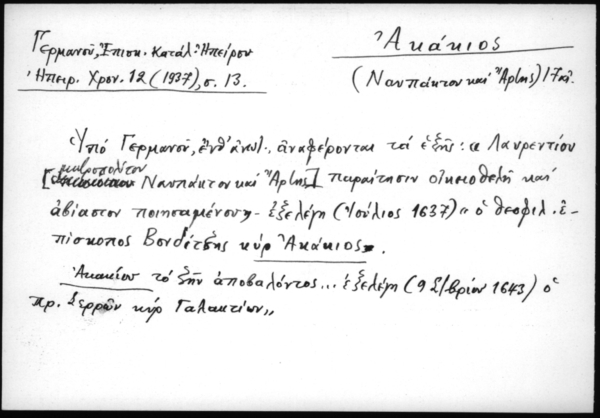 Γερμανοῦ, Ἐπισκ. Κατάλ. Ἠπείρου
Ἠπειρ. Χρον. 12 (1937), σ. 13.
Ἀκάκιος
(Ναυπάκτου καὶ Ἄρτης) 17 αἰ.
Ὑπό Γερμανοῦ, ἔνθ' ἀνωτ., ἀναφέρονται τά ἑξῆς: « Λαυρεντίου
[μητροπολίτου Ναυπάκτου καὶ Ἄρτης] παραίτησιν οἰκειοθελῆ καί
ἀβίαστον ποιησαμένου, ἐξελέγη (Ἰούλιος 1637) « ὁ θεοφιλ. ἐ-
πίσκοπος Βονδίτζης κύρ Ἀκάκιος».
Ἀκακίου τό ζῆν ἀποβαλόντος... ἐξελέγη (9 Σ/βρίου 1643) ὁ
πρ. Σερρῶν κύρ Γαλακτίων,,